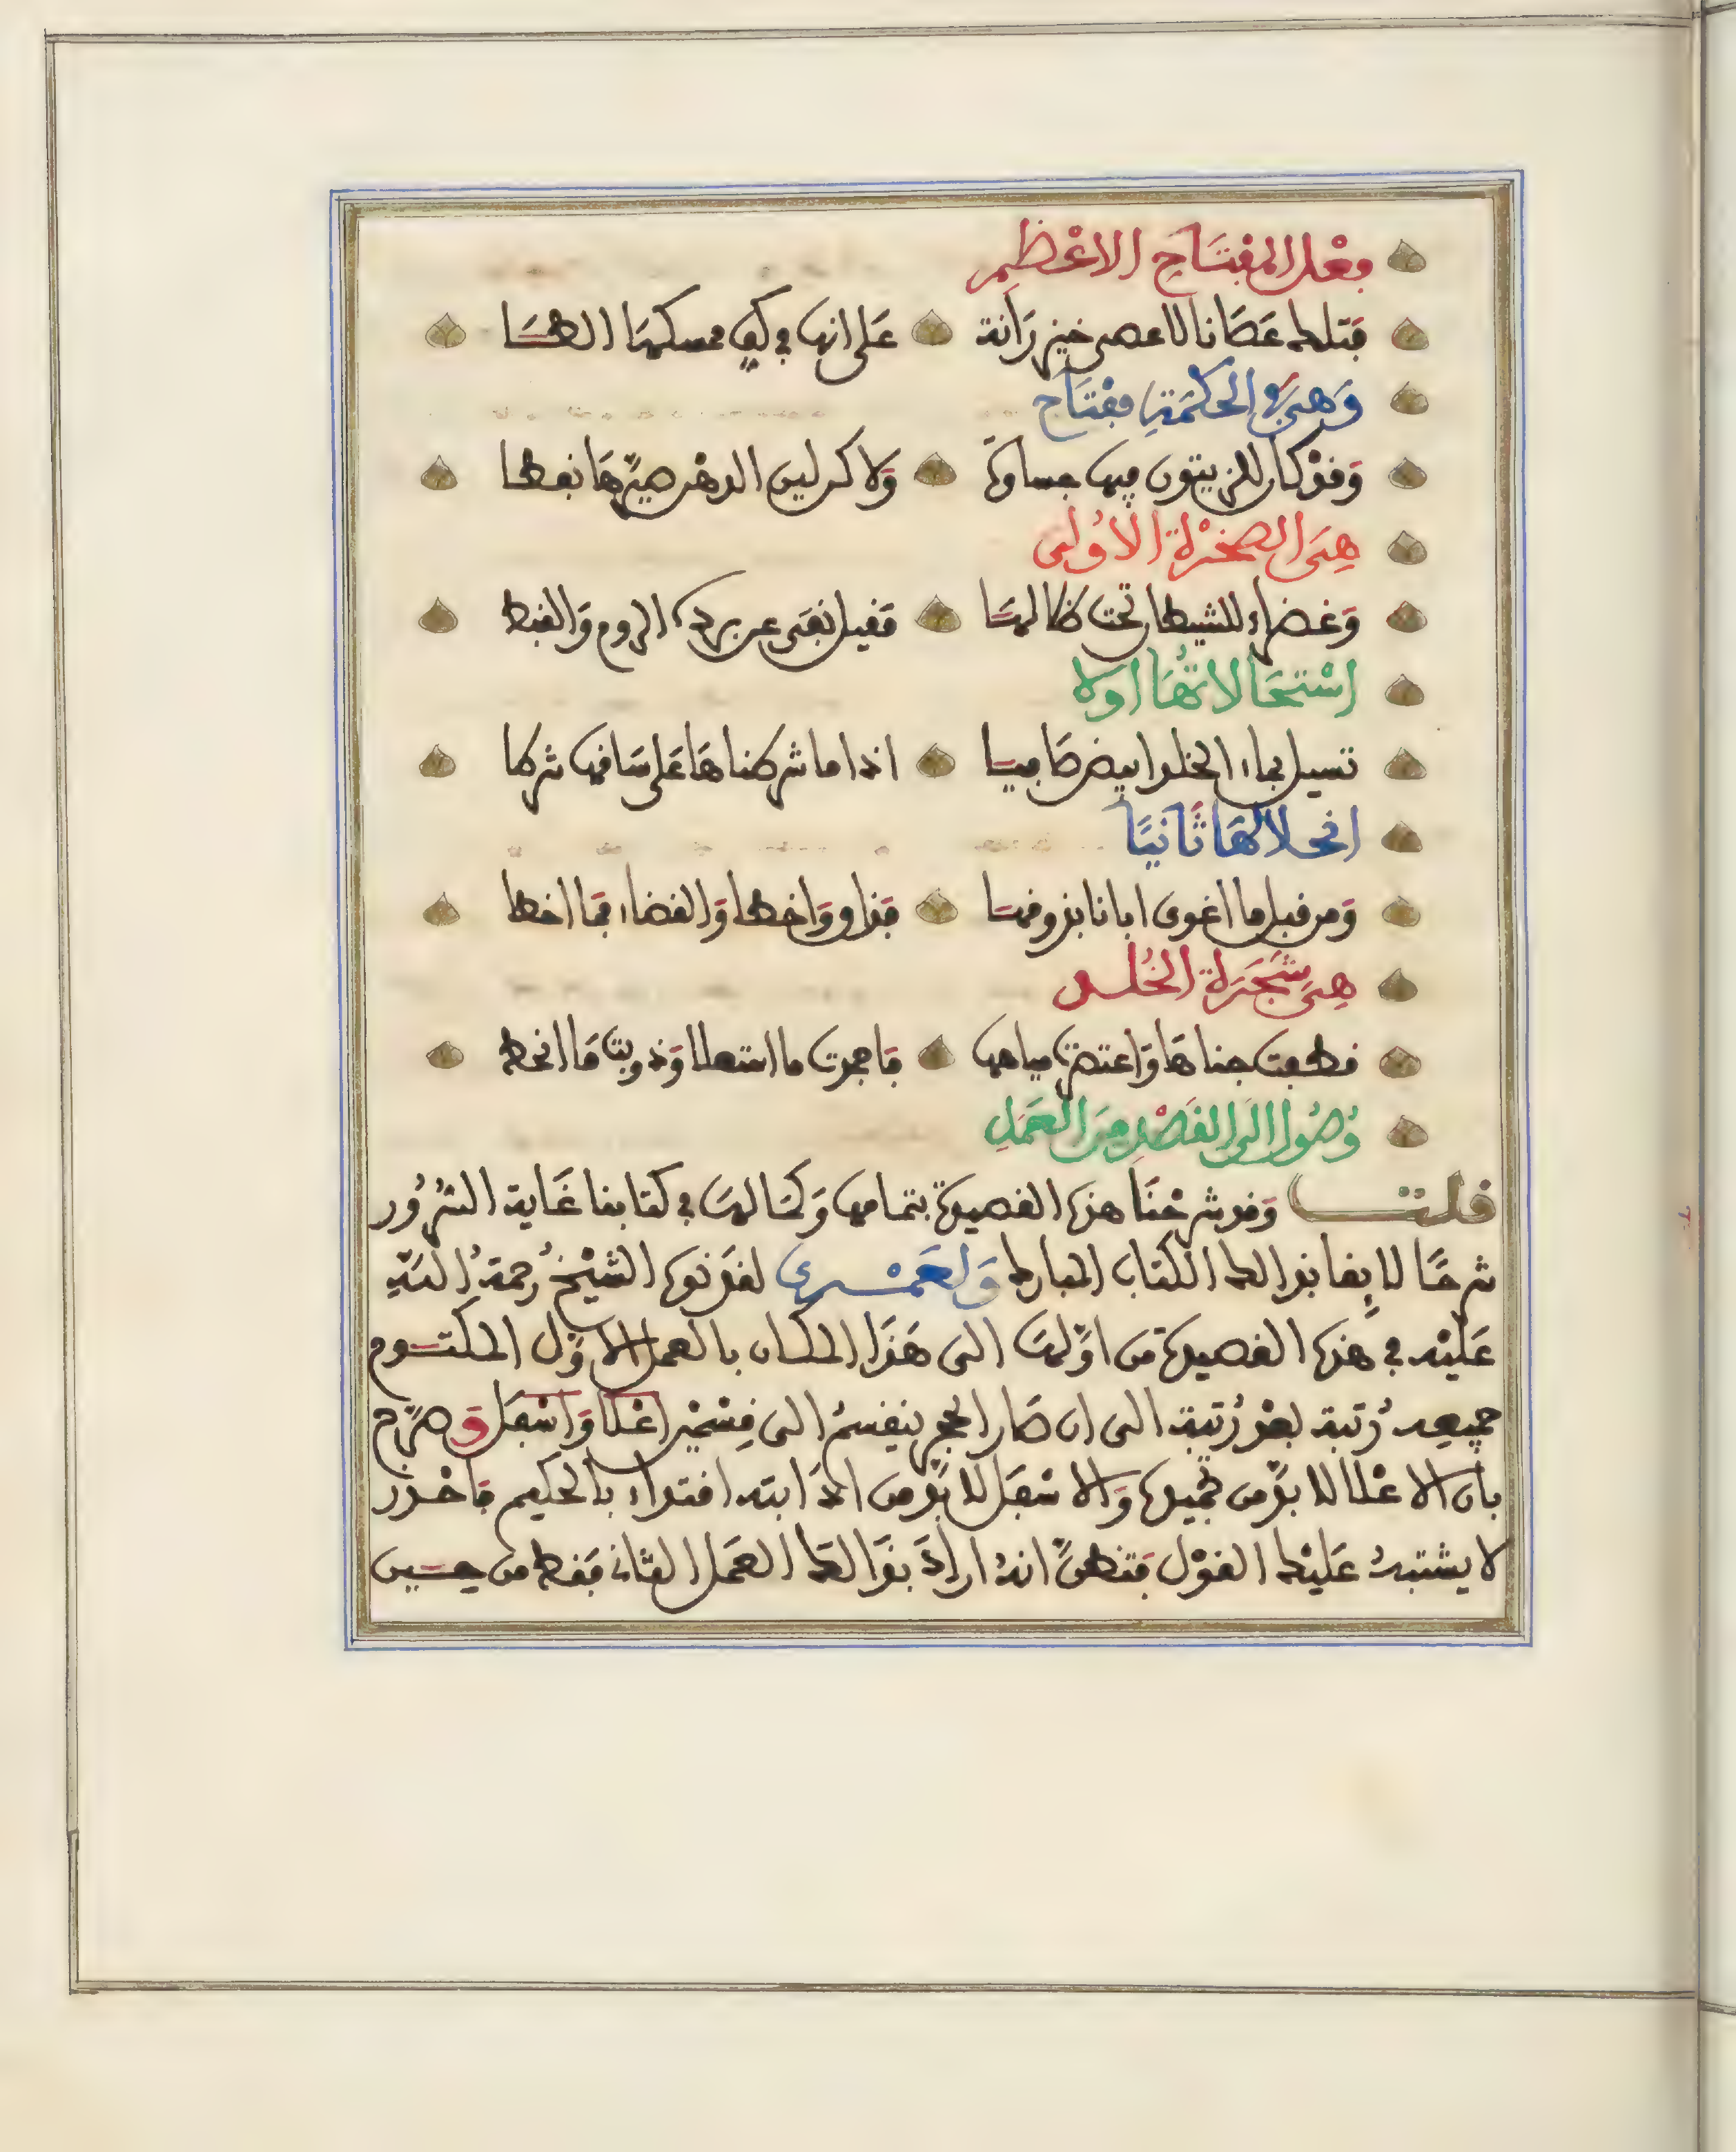 فعل المفتاح الاعْظم
فتلك عَصَانا لا عصى خيزرانة على انها في كف ممسكها الهسا
وَهىَ في الحكْمَةِ مفْتَاح
وَقد كان للزيتون فيها جساوة ولاكن ليس الدهْر صيّرهَا نفطا
هِىَ الصخْرة الأُولى
وَغضاء للشيطان تحت ظلالهَا مَقيل نفى عن برده الروم وَالقبط
اسْتحَالاتُهَا اولا
تسيل بماء الخلد ابيض صَافيا اذا ما شرطناهَا عَلى سَاقها شرطا
انحلالهَا ثَانيًا
وَمن قبل ما اغوى ابانا بذوقهَا فذاق وَاخطا وَالقضاء فمَا اخطا
هِىَ شَجَرَة الخُلد
قطفت جناهَا وَاعتصرت مياهها فاجمدت ما استعلا وَذوبت مَا انحط
وُصُول الَى القَصْدِ مِنَ العَمَلِ
قلت وَقد شرحْنَا هذه القصيدة بتمامها وَكمَالهَا في كتابنا غَاية السُرُور
شرحًا لايقا بذالك الكتاب المبارك وَلعَمْرى لقد نوه الشيْخُ رحمَةُ اللهِ
عَليْه في هذه القصيدة من اوّلهَا الى هَذا المكان بالعمل الاوّل المكتوم
جميعه رُتبة بعْد رُتبة الى ان صَار الحجر ينقسمُ الى قِسْمَيْن اعْلا وَاسْفل وَصرّح
بان الاعْلا لا بدّ من تجميده وَالاسْفل لا بدّ من اذابته اقتداء بالحكيم فاحْذر
لا يشتبه عَليْك القوْل فتظنّ انهُ ارادَ بذَالك العمَل الثاني فقط من حسين